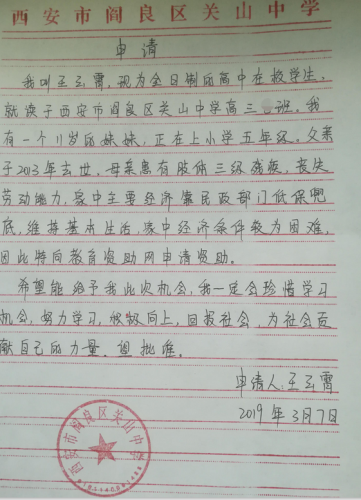 西安市阎良区关山中学
申请
我叫王云霄,现为全日制的高中在校学生,
就读于西安市阎良区关山中学高三班。我
有一个11岁的妹妹,正在上小学五年级。父亲
于2013年去世。母亲患有肢体三级残疾,丧失
劳动能力,家中主要经济靠民政部门低保兜
底,维持基本生活,家中经济条件较为困难,
因此特向教育资助网申请资助。
希望能给予我此次机会,我一定会珍惜学习
机会,努力学习,积极向上,回报社会,为社会贡
献自己的力量。望批准。
申请人:王云霄
2019年3月7日
西安市阎良区关山中学